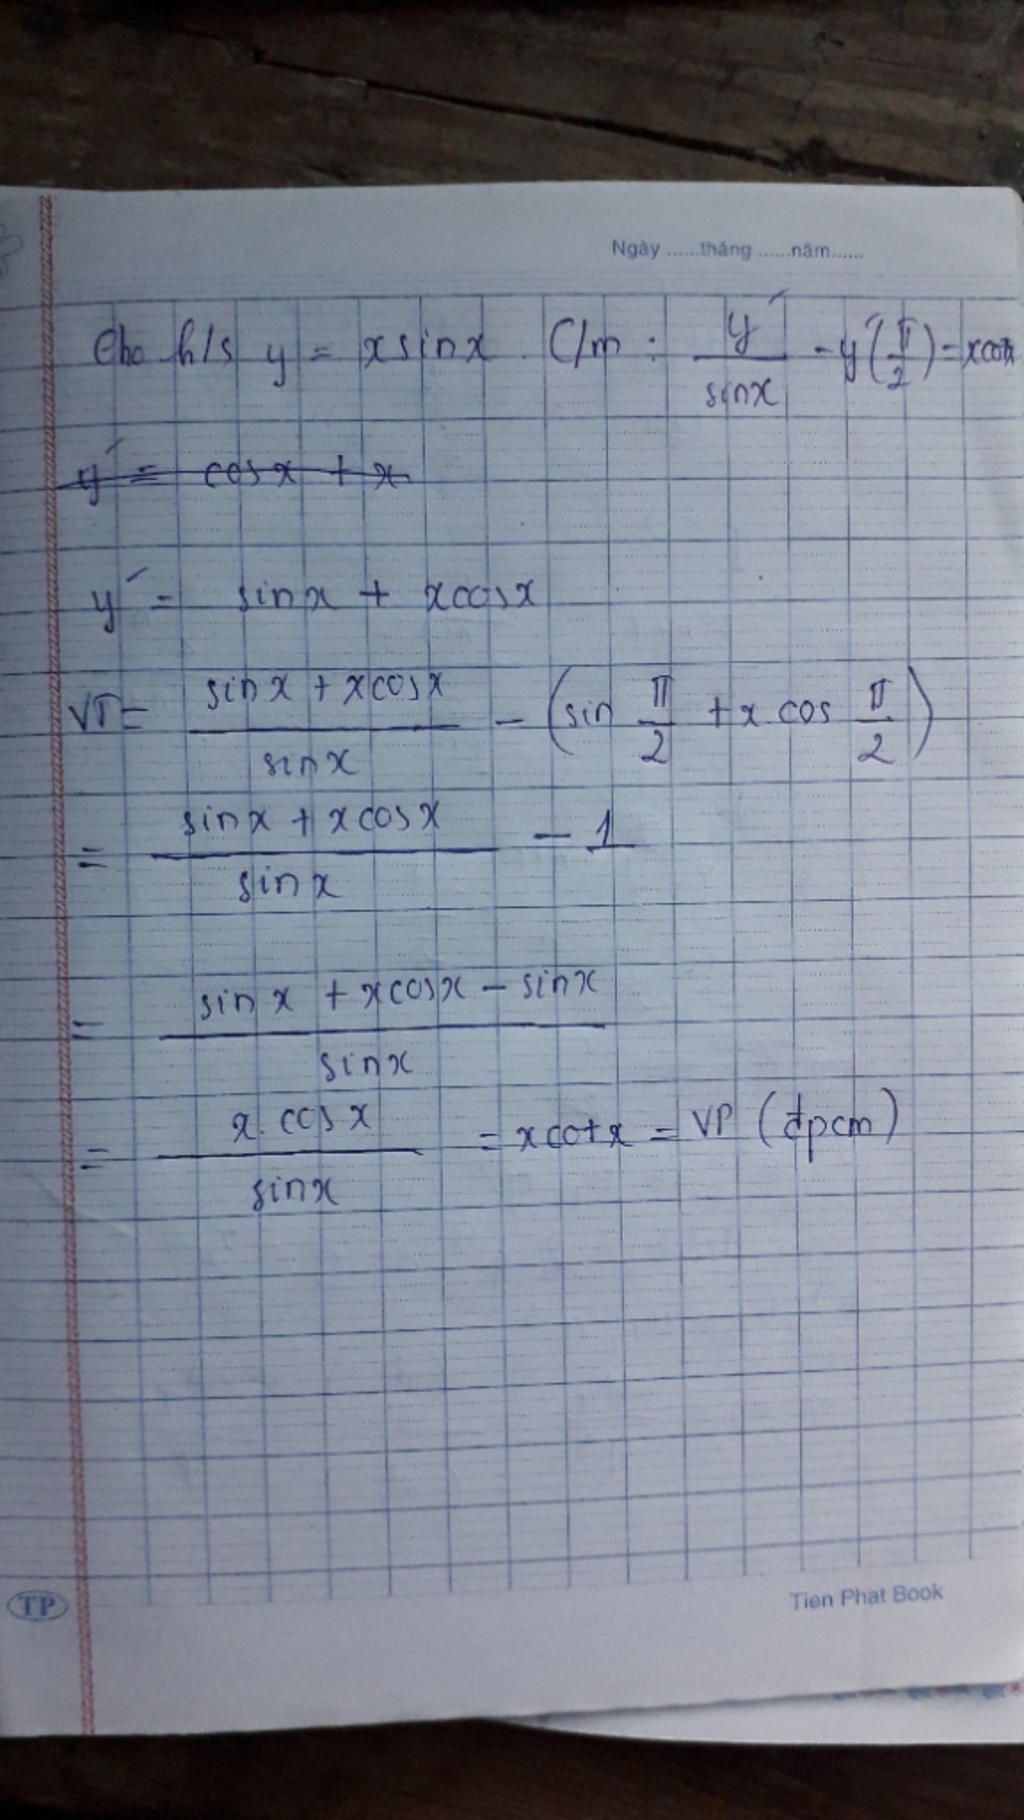 Ngày ......tháng ......năm......
Cho h/s y = xsinx. C/m : y'/sinx - y'(π/2) = xcotx
y' = cosx + x
y' = sinx + xcosx
VT = (sinx + xcosx)/sinx - (sin π/2 + x cos π/2)
= (sinx + xcosx)/sinx - 1
= (sinx + xcosx - sinx)/sinx
= (x.cosx)/sinx = xcotx = VP (đpcm)
TP
Tien Phat Book